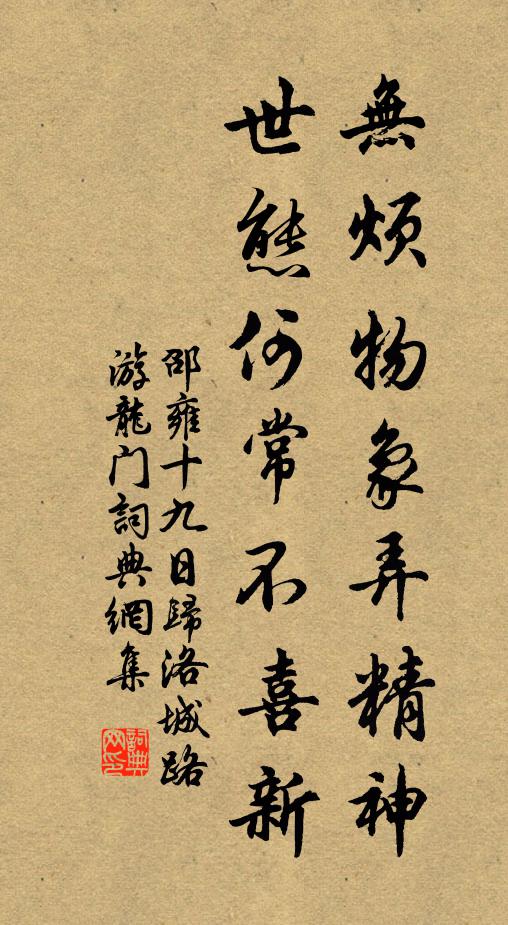 無煩物象弄精神
世態何常不喜新
邵雍十九日歸洛城路
游龍门詞典網集
詞典
网印